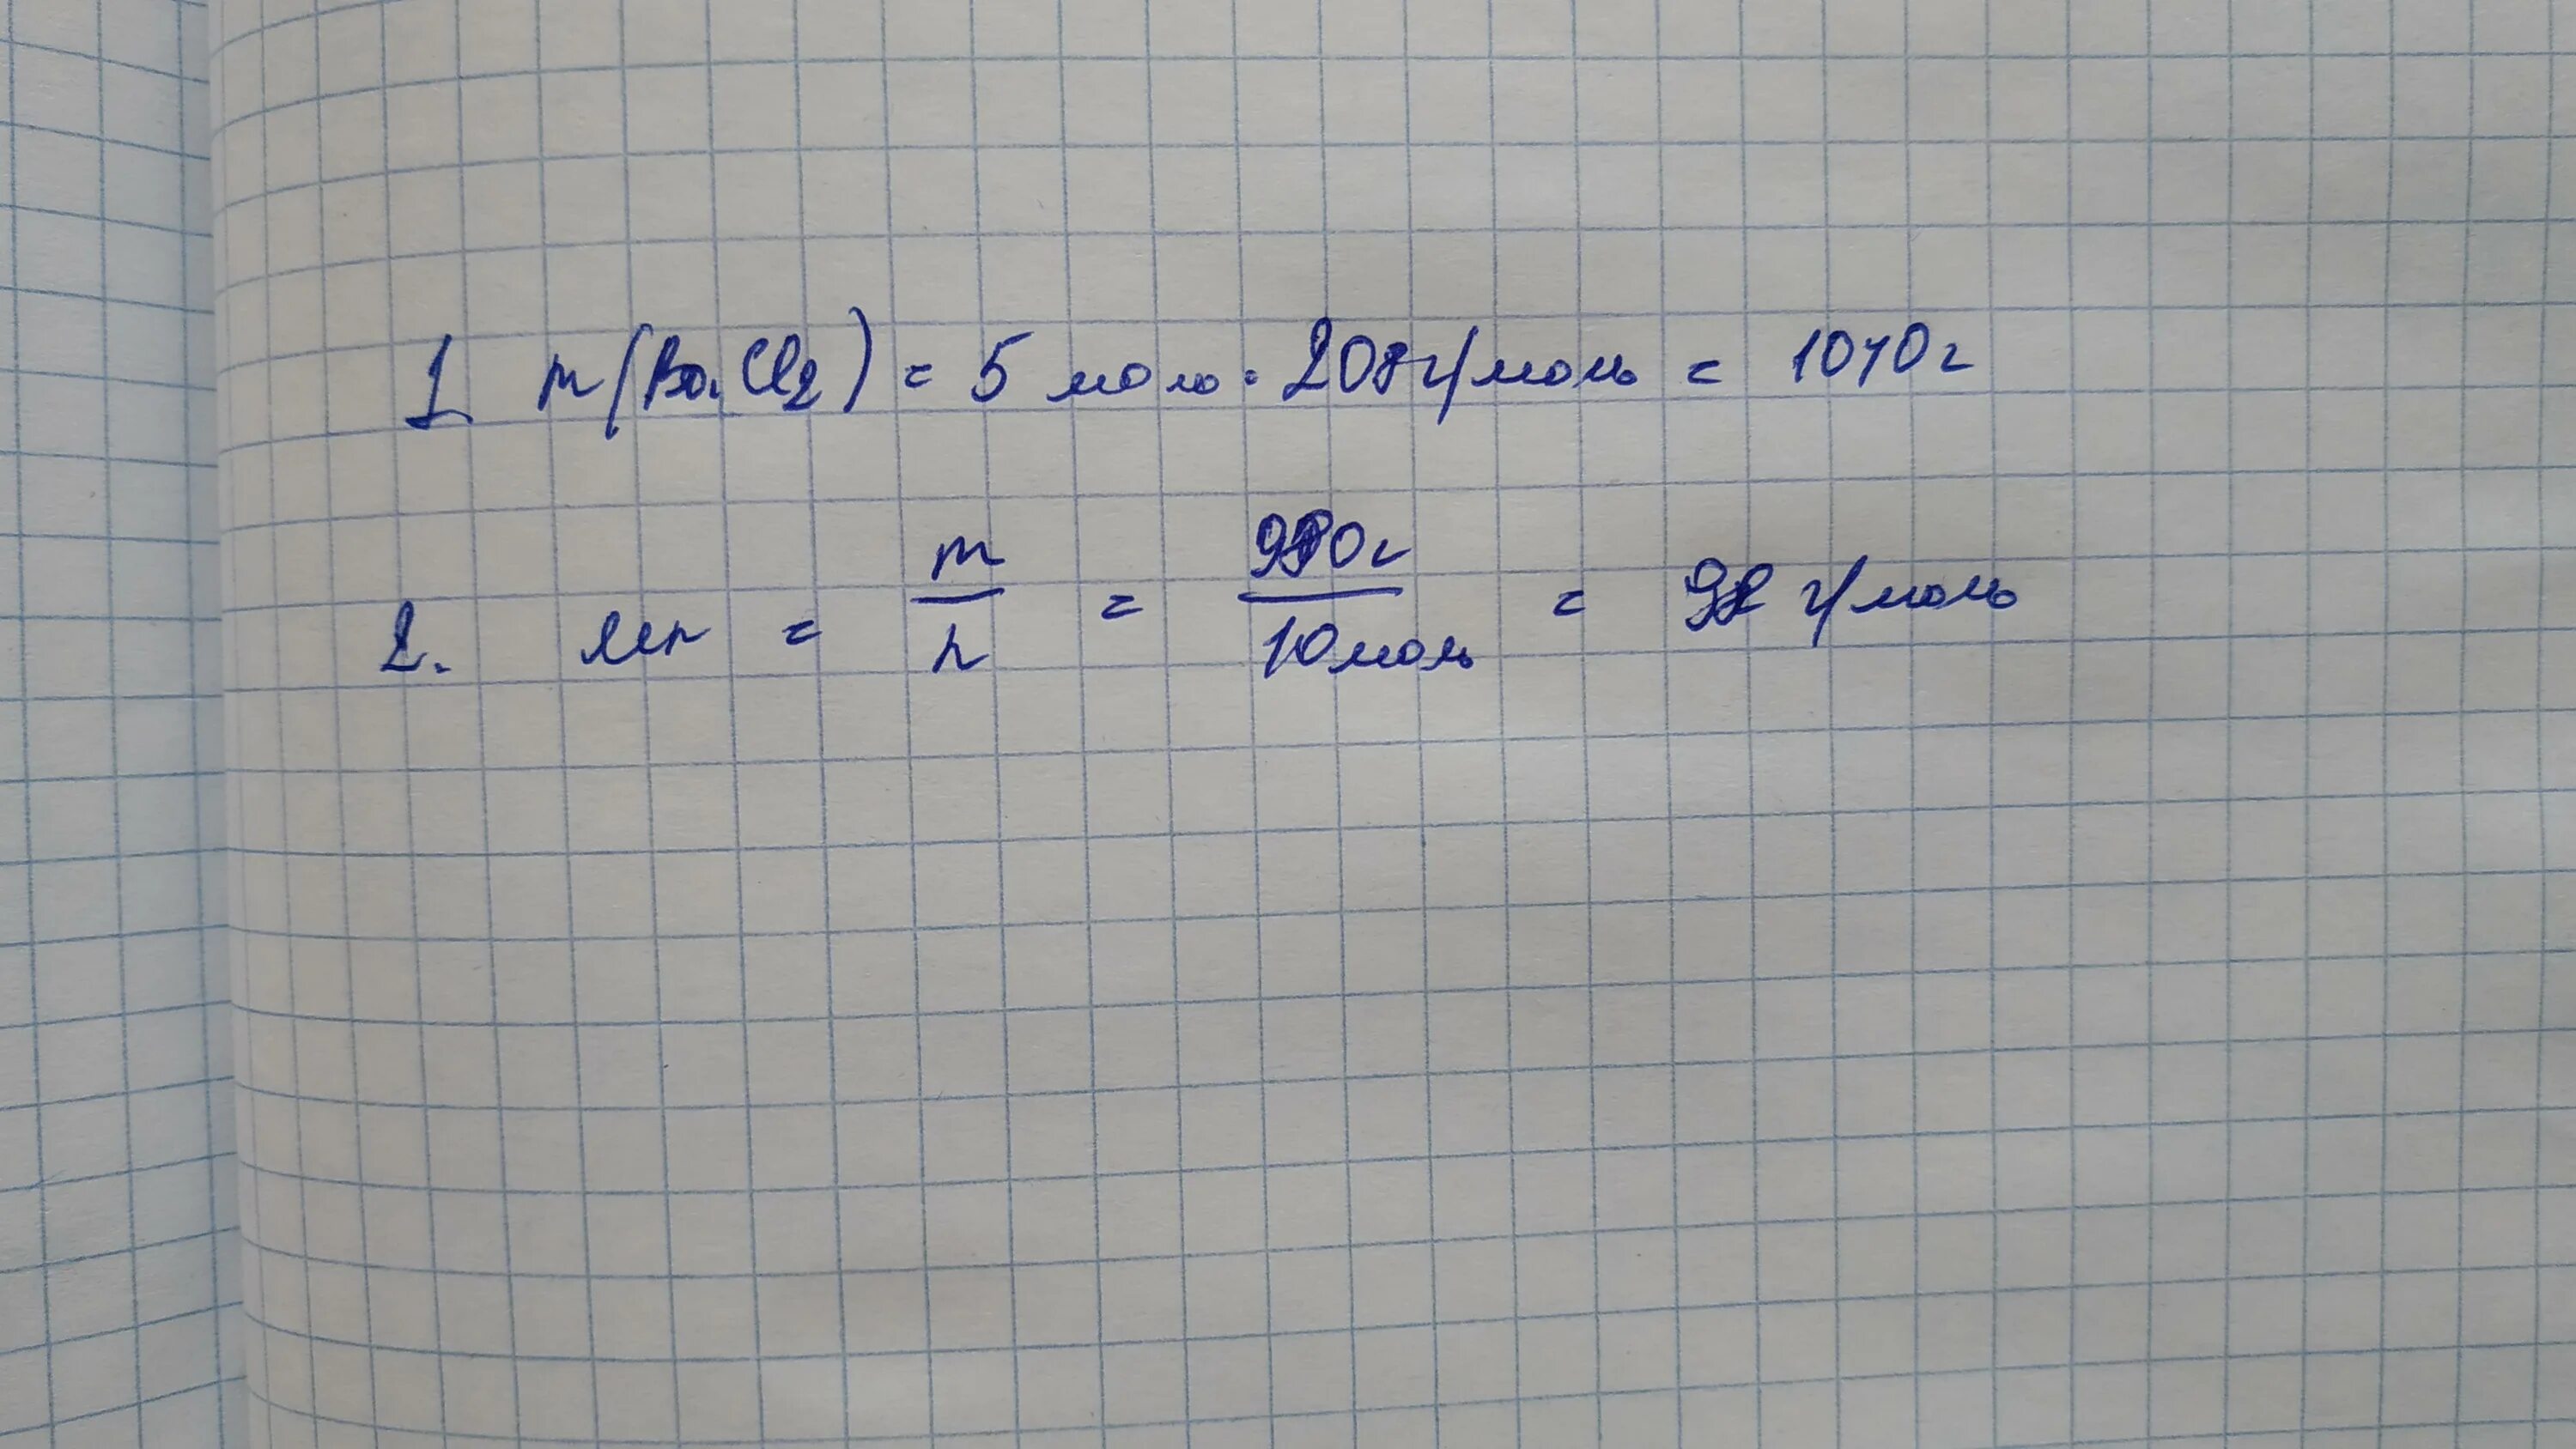 1 m(BaCl2) = 5 моль · 208 г/моль = 1040 г
2. Mr = m/n = 980 г/10 моль = 98 г/моль